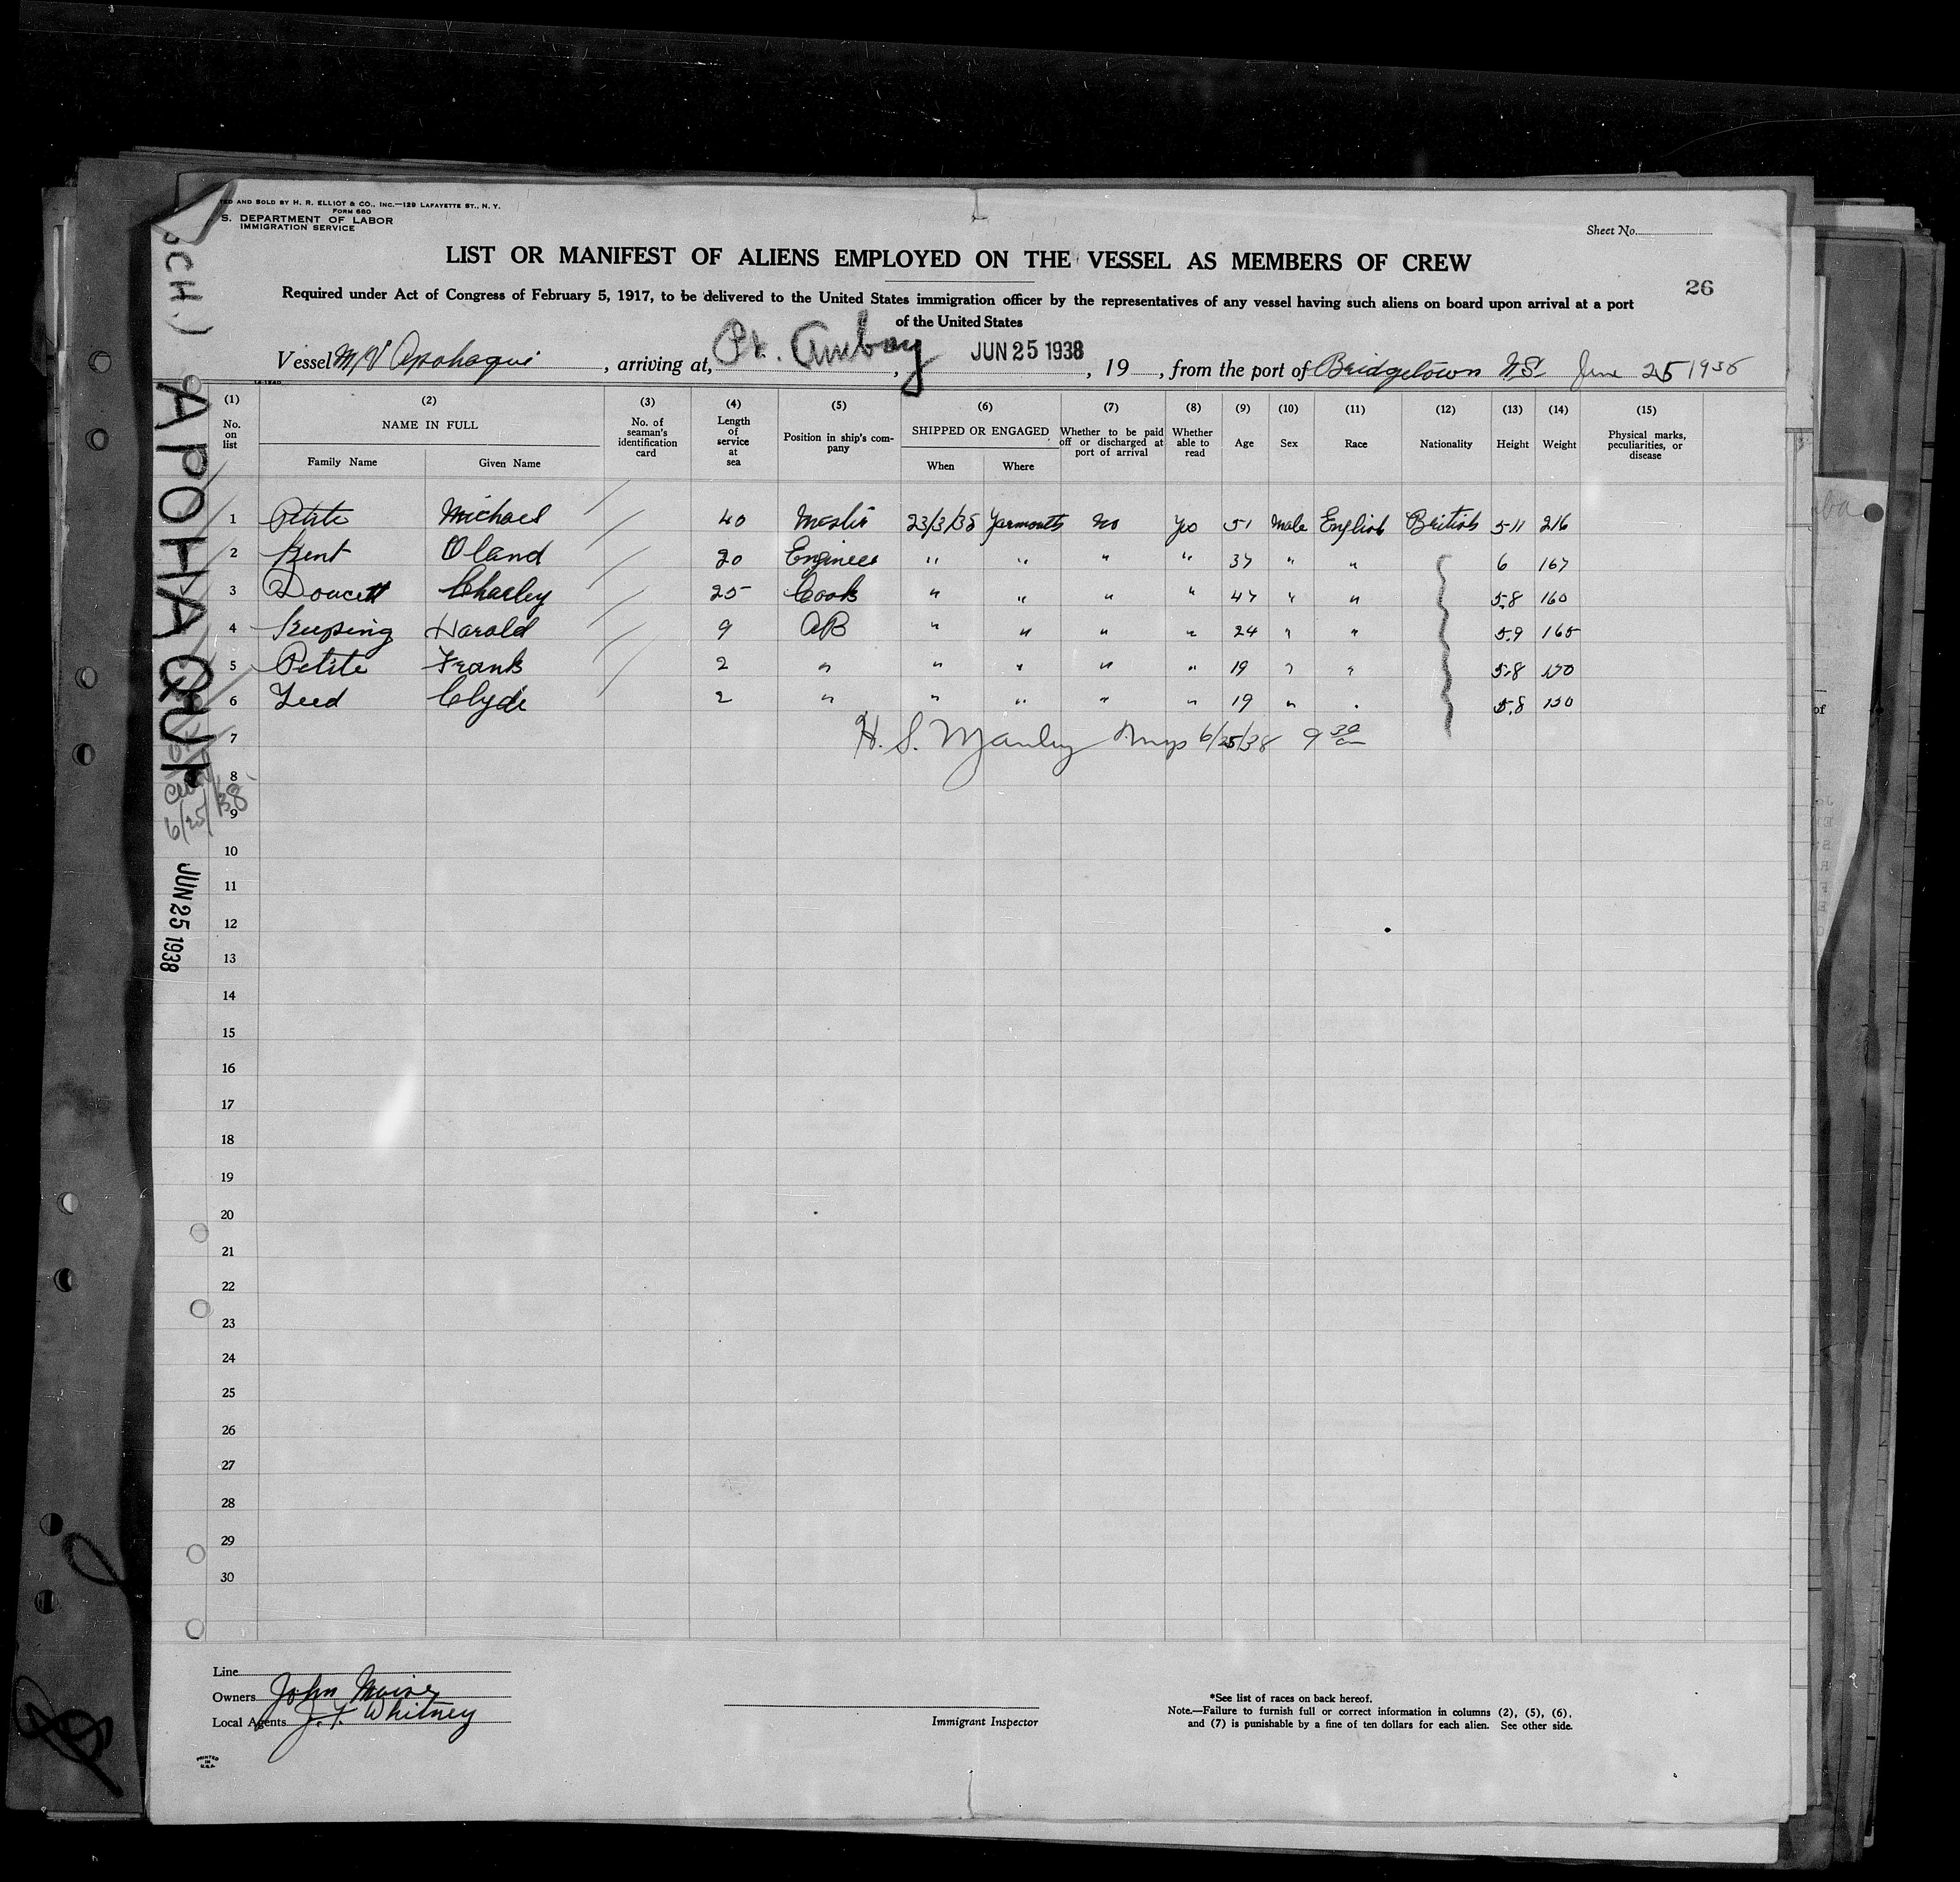 TED AND SOLD BY H. R. ELLIOT & CO., INC.—129 LAFAYETTE ST., N. Y.
FORM 680
S. DEPARTMENT OF LABOR
IMMIGRATION SERVICE
Sheet No.
LIST OR MANIFEST OF ALIENS EMPLOYED ON THE VESSEL AS MEMBERS OF CREW
26
Required under Act of Congress of February 5, 1917, to be delivered to the United States immigration officer by the representatives of any vessel having such aliens on board upon arrival at a port
of the United States
Vessel M/V Apohaqui, arriving at, Pt. Amboy, JUN 25 1938, 19, from the port of Bridgetown N.S. June 25 1938
(1) No. on list (2) NAME IN FULL Family Name Given Name (3) No. of seaman's identification card (4) Length of service at sea (5) Position in ship's company (6) SHIPPED OR ENGAGED When Where (7) Whether to be paid off or discharged at port of arrival (8) Whether able to read (9) Age (10) Sex (11) Race (12) Nationality (13) Height (14) Weight (15) Physical marks, peculiarities, or disease
1 Petite Michael 40 Master 23/3/38 Yarmouth No yes 51 Male English British 5-11 216
2 Kent Oland 20 Engineer " " " " 37 " " 6 167
3 Doucett Charley 25 Cook " " " " 47 " " 5.8 160
4 Keeping Harold 9 AB " " " " 24 " " 5.9 165
5 Petite Frank 2 " " " " " 19 " " 5.8 150
6 Clyde 2 " " " " " 19 " " 5.8 150
7 H. S. Manley Insp 6/25/38 9 30 am
8
9
10
11
12
13
14
15
16
17
18
19
20
21
22
23
24
25
26
27
28
29
30
(SCH.) APOHAQUI
6/25/38
JUN 25 1938
Line
Owners John
Local Agents J. T. Whitney
Immigrant Inspector
*See list of races on back hereof.
Note.—Failure to furnish full or correct information in columns (2), (5), (6),
and (7) is punishable by a fine of ten dollars for each alien. See other side.
PRINTED
IN
U.S.A.